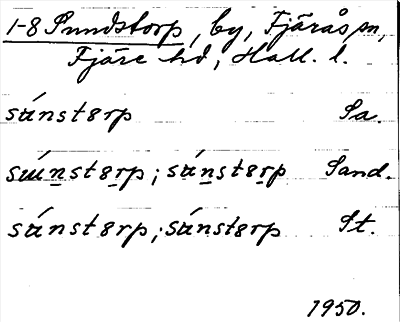 1-8 Sundstorp, by, Fjärås sn,
Fjäre hd, Hall. l.
súnstørp Sa.
sɯ́ns̲tø̲rp; sún̲stør̲p Sand.
súnstørp; súnstørp St.
1950.